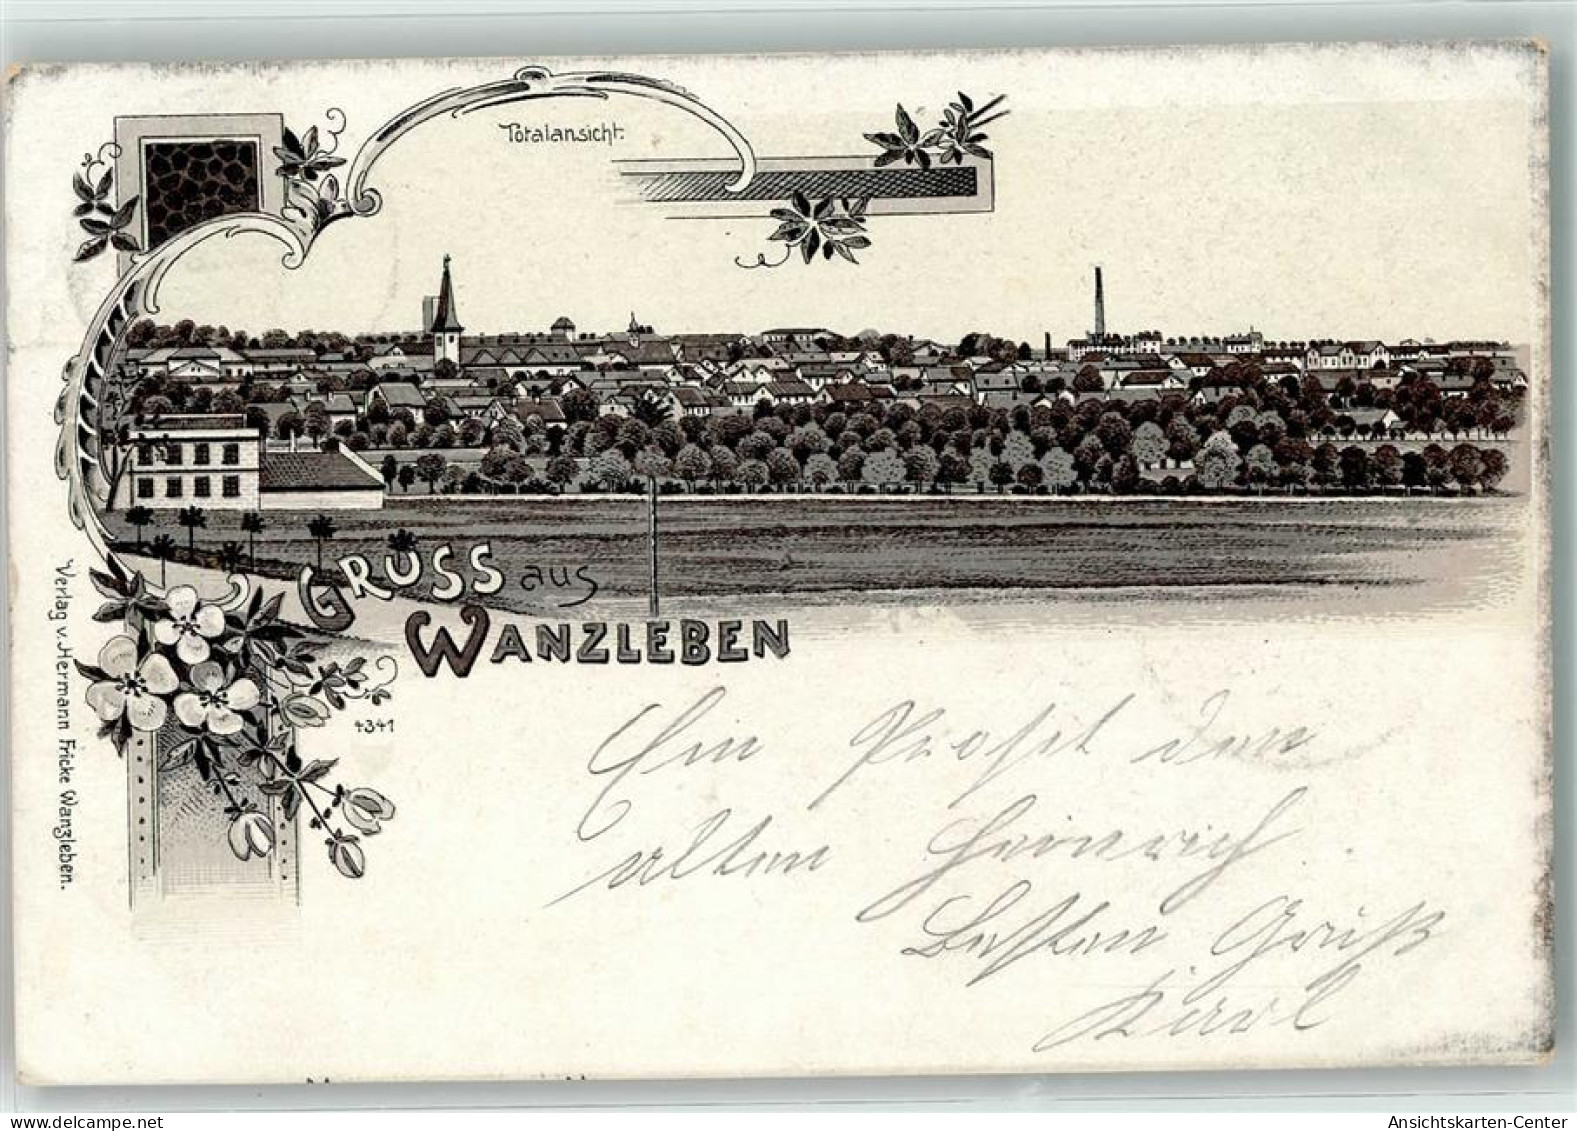 Totalansicht.
GRUSS aus
WANZLEBEN
4341
Verlag v. Hermann Fricke Wanzleben.
Ein Prosit dem
alten Heinrich.
Besten Gruß
Karl
delcampe.net
Ansichtskarten-Center